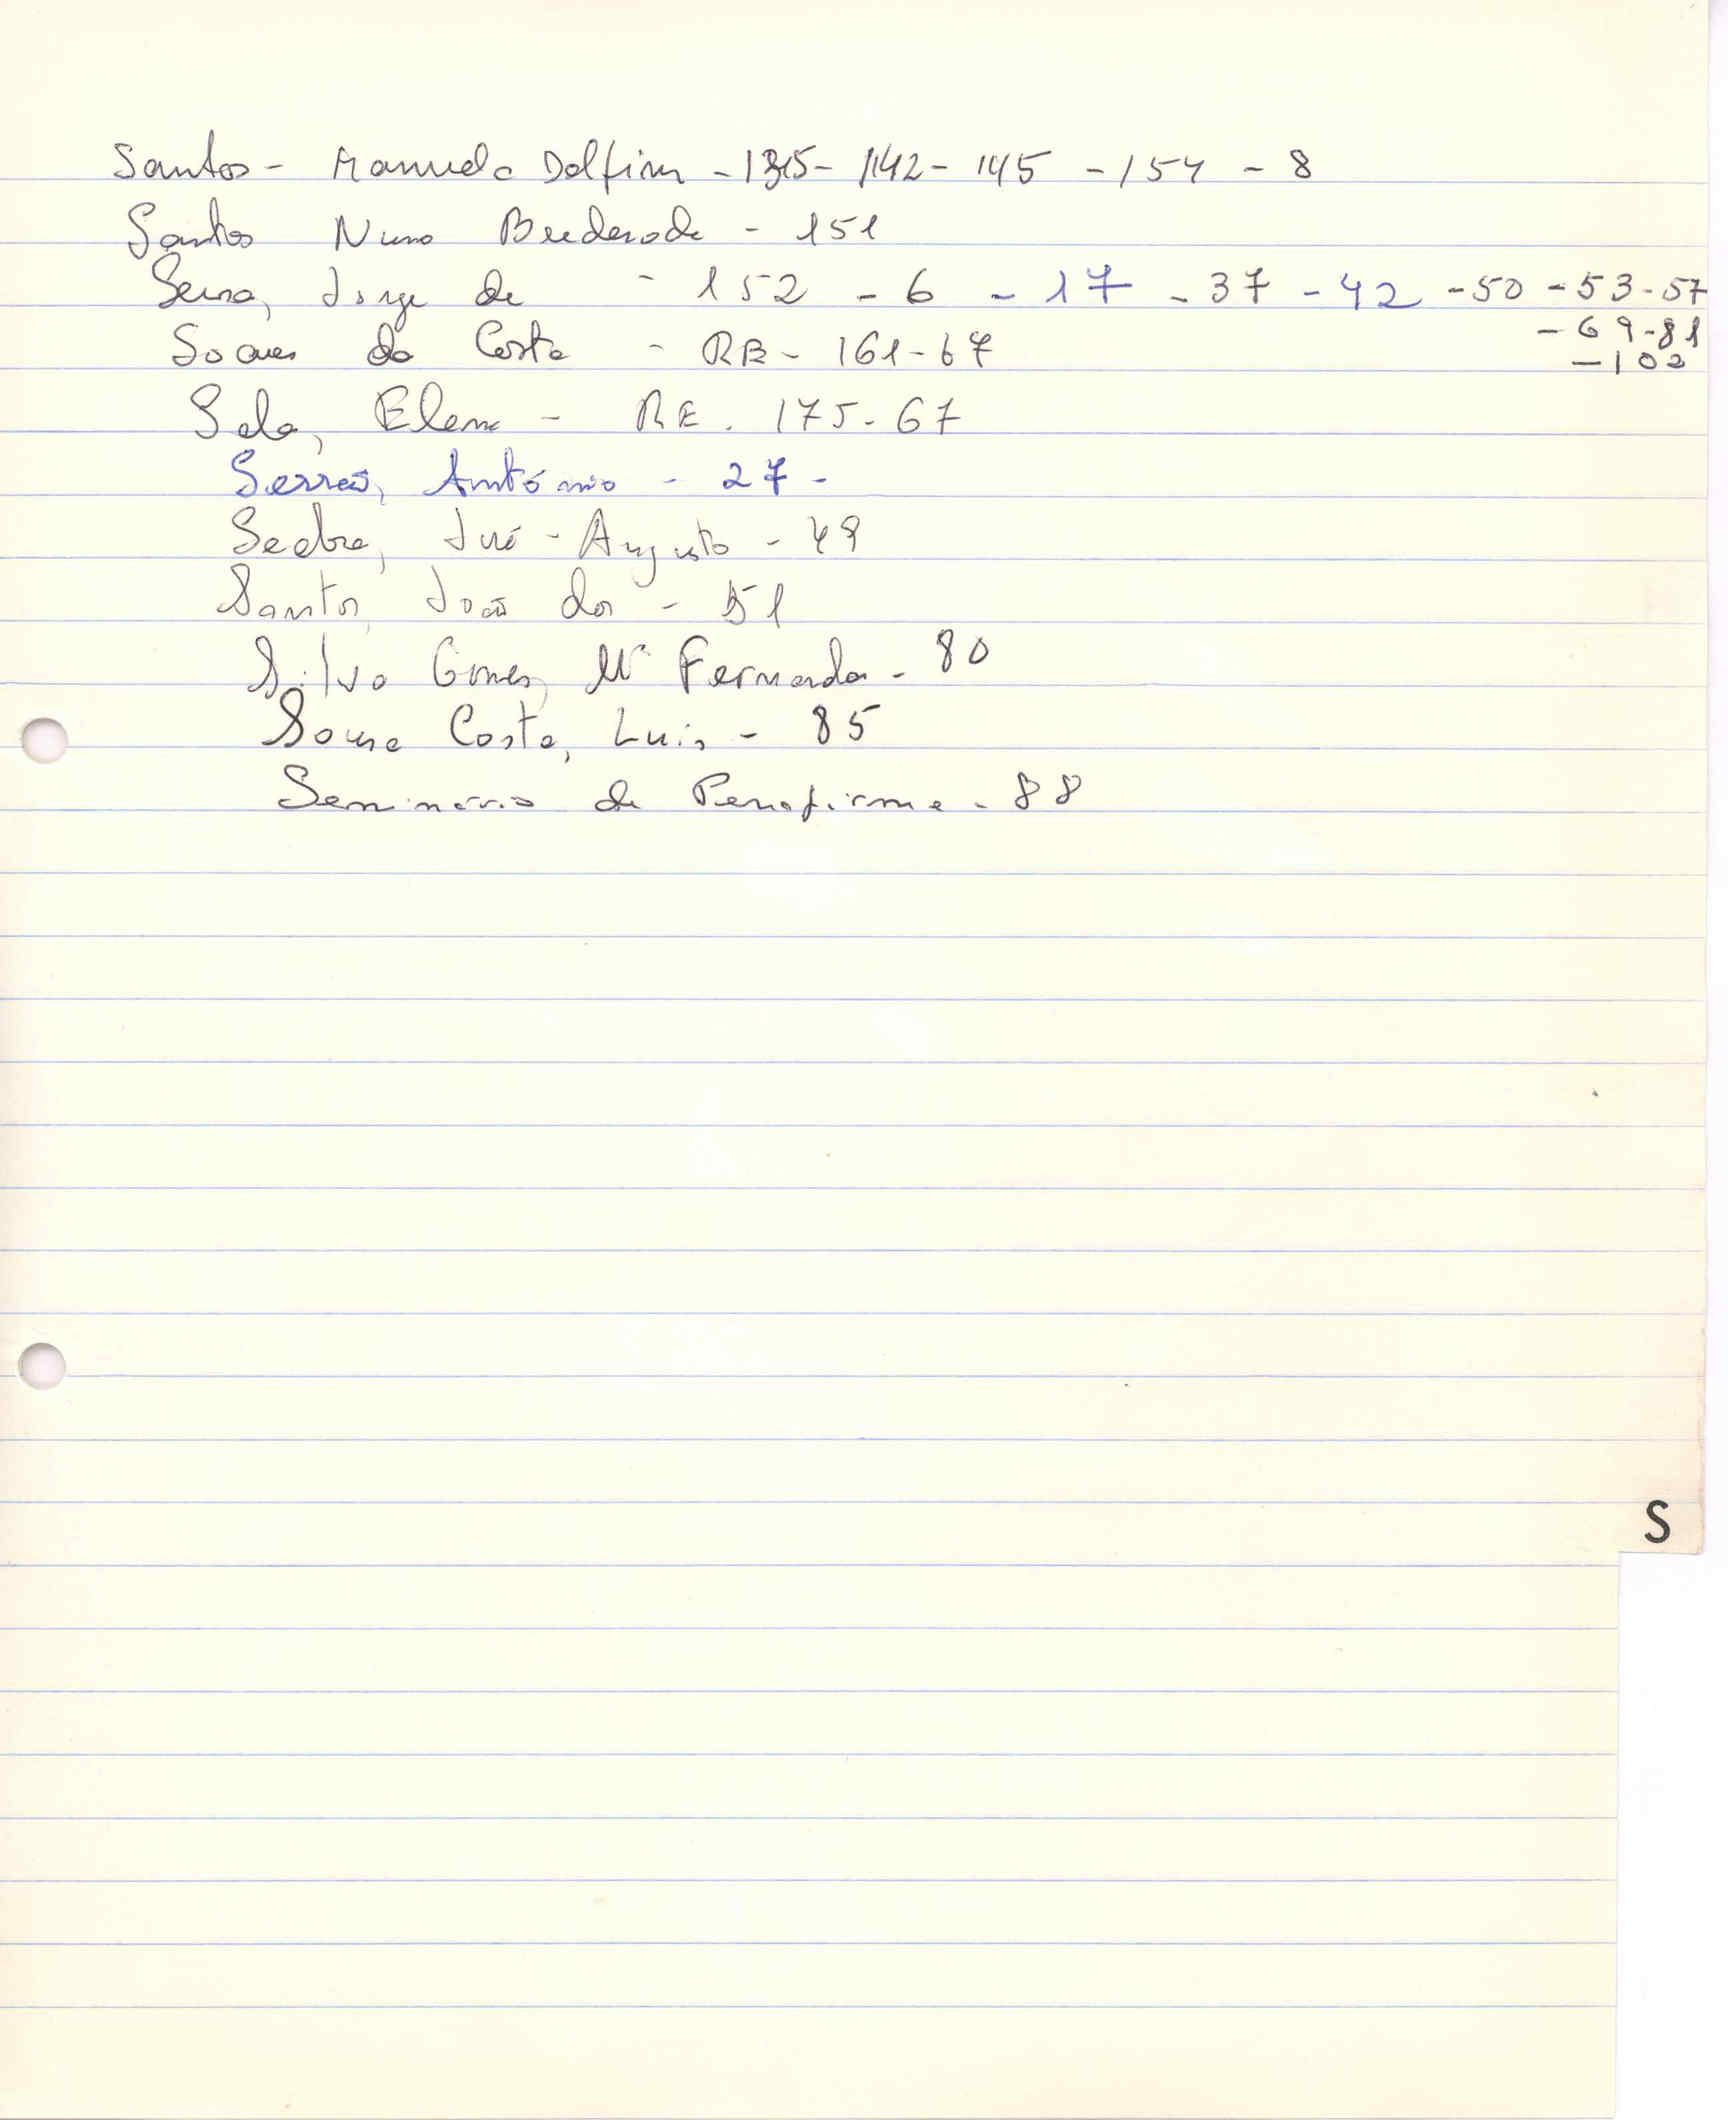 Santos - Manuela Delfim - 135 - 142 - 145 - 154 - 8
Santos Nuno Brederode - 151
Sena, Jorge de - 152 - 6 - 17 - 37 - 42 - 50 - 53 - 57
- 69 - 81
- 102
Soares da Costa - RB - 161 - 67
Sela, Elena - RE. 175 - 67
Serrão, António - 27 -
Seabra, José - Augusto - 49
Santos, João dos - 51
Silva Gomes, Mª Fernanda - 80
Sousa Costa, Luis - 85
Seminário de Penafirme - 88
S